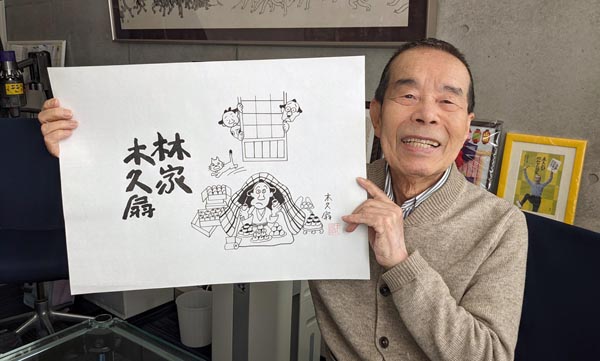 林家
木久扇
木久扇